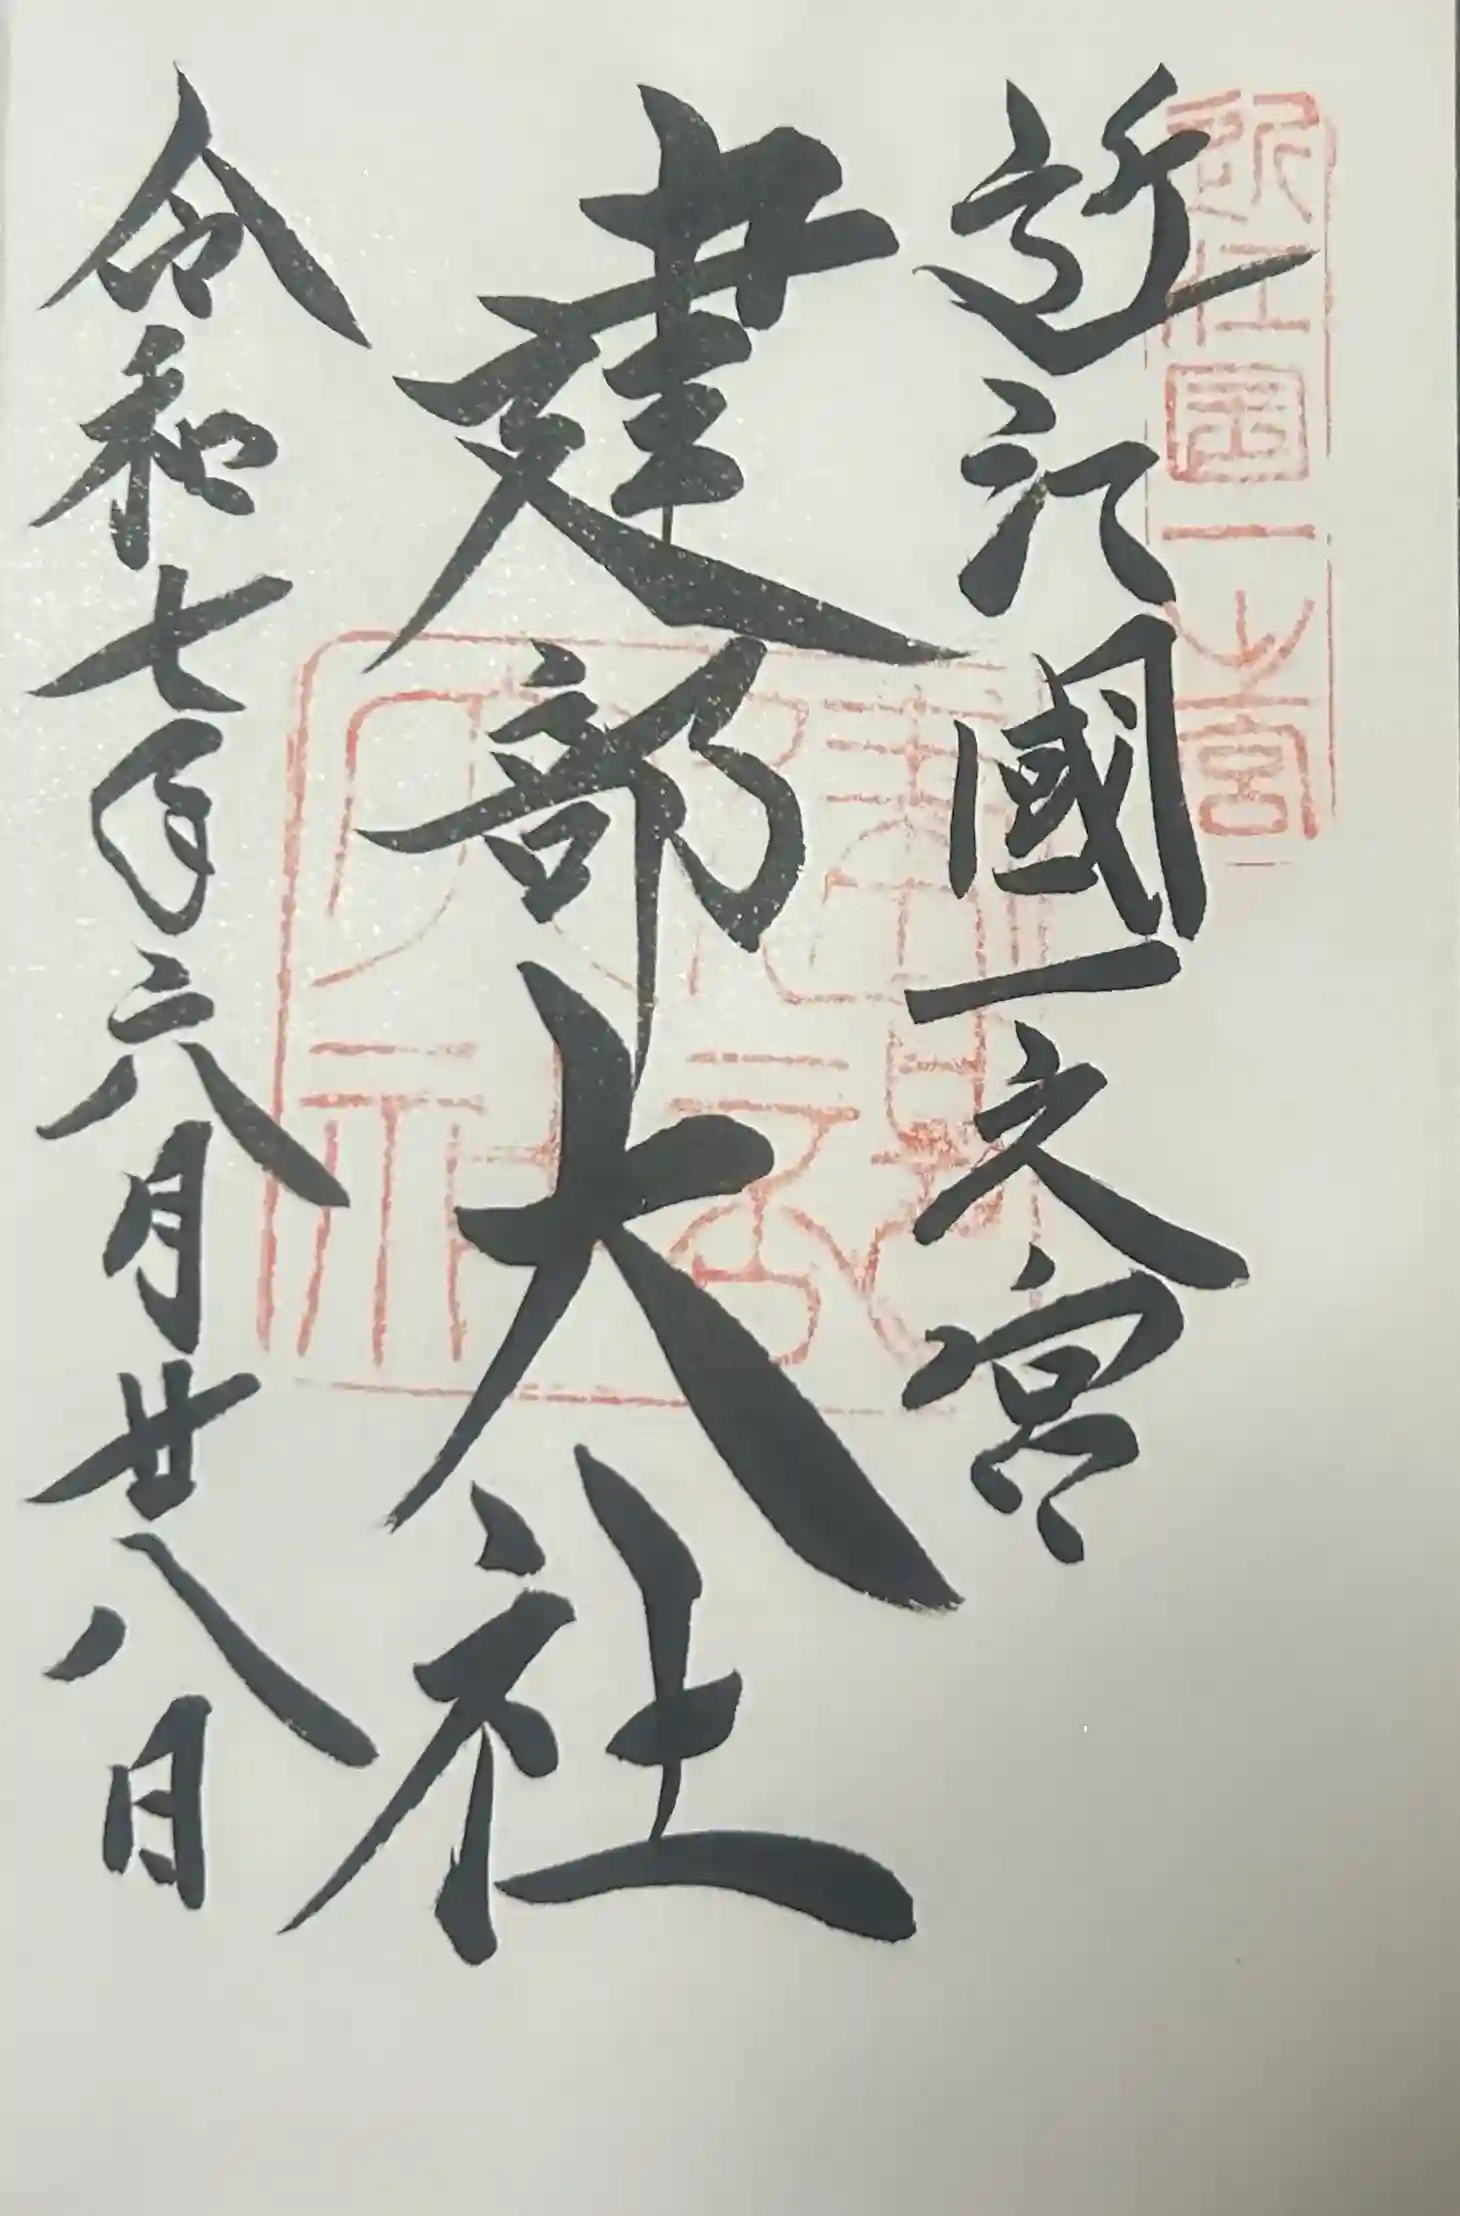 近江國一之宮
近江國一之宮
建部大社
令和七年六月廿八日